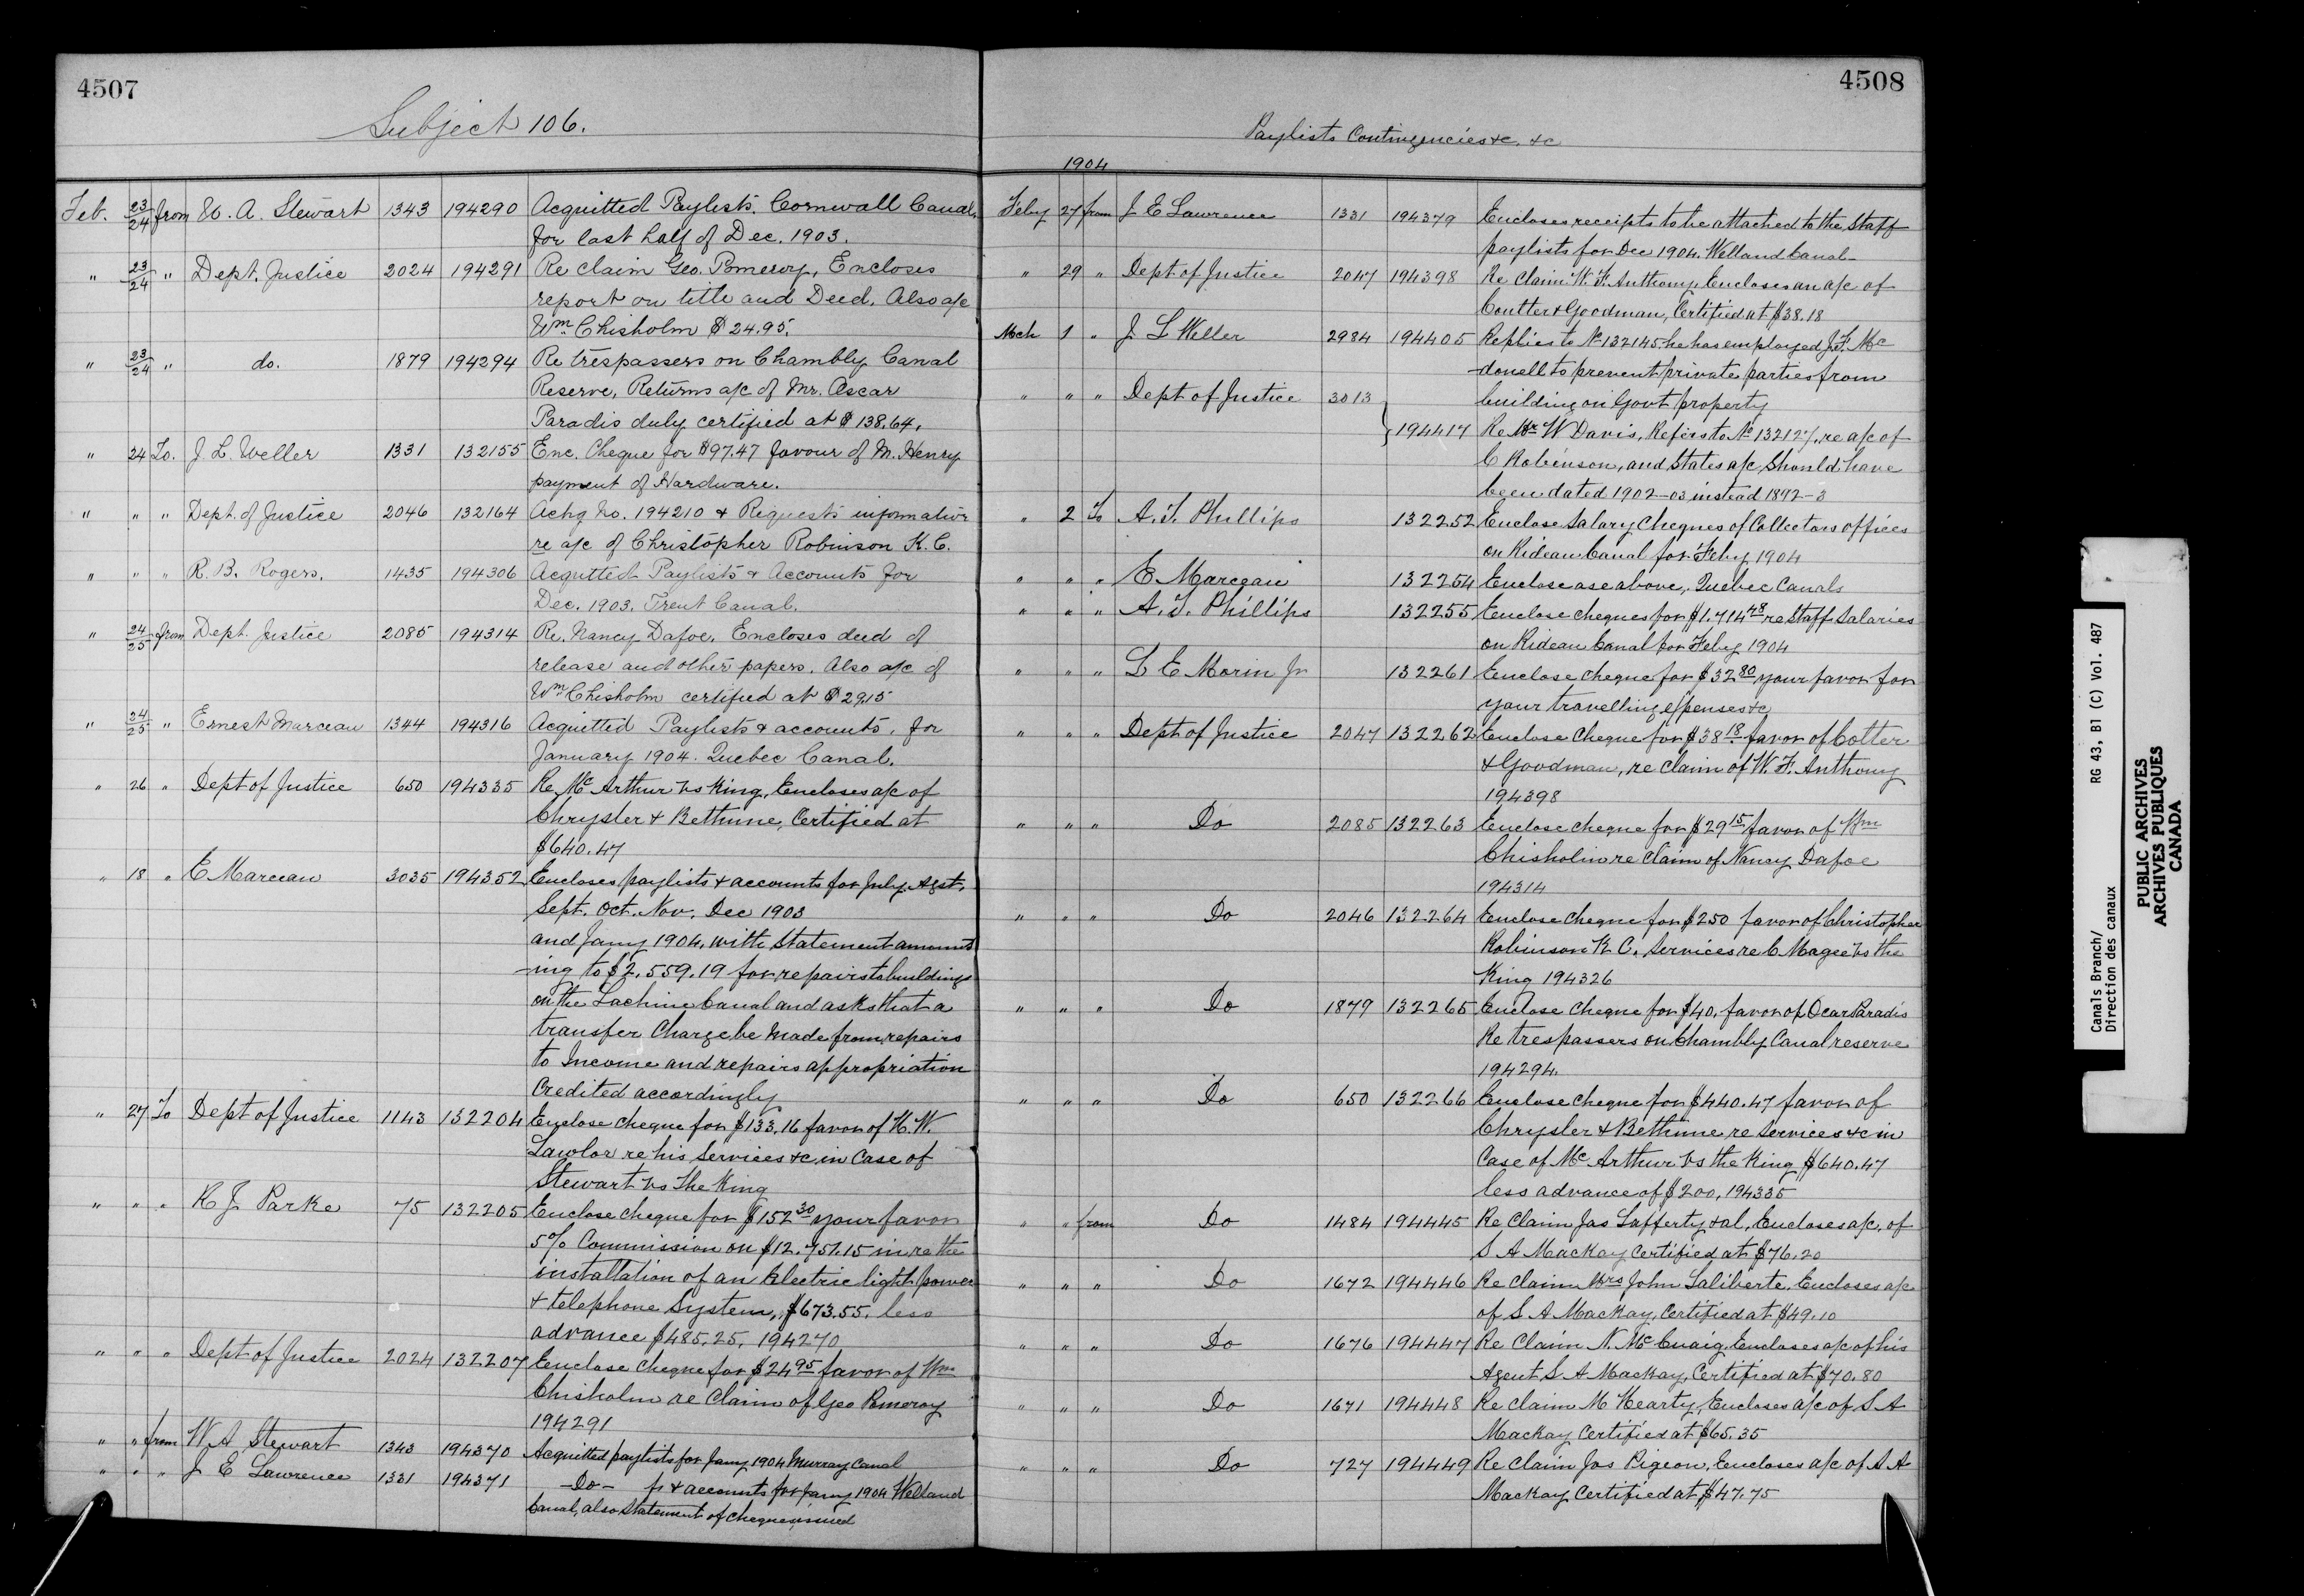 4507
Subject 106.
Feb. 23/24 from W. A. Stewart 1343 194290 Acquitted Paylists. Cornwall Canal,
for last half of Dec. 1903.
" 23/24 " Dept. Justice 2024 194291 Re claim Geo. Pomeroy, Encloses
report on title and Deed. Also a/c
Wm Chisholm $24.95.
" 23/24 " do. 1879 194294 Re trespassers on Chambly Canal
Reserve, Returns a/c of Mr. Oscar
Paradis duly certified at $138.64.
" 24 To. J. L. Weller 1331 132155 Enc. Cheque for $97.47 favour of M. Henry
payment of Hardware.
" " " Dept. of Justice 2046 132164 Ackg No. 194210 & Requests information
re a/c of Christopher Robinson K.C.
" " " R. B. Rogers. 1435 194306 Acqutted Paylists & Accounts for
Dec. 1903. Trent Canal.
" 24/25 from Dept. Justice 2085 194314 Re. Nancy Dafoe. Encloses deed of
release and other papers. Also a/c of
Wm Chisholm certified at $29.15
" 24/25 " Ernest Marceau 1344 194316 Acquitted Paylists & accounts. for
January 1904. Quebec Canal.
" 26 " Dept of Justice 650 194335 Re Mc Arthur vs King, Encloses a/c of
Chrysler & Bethune, Certified at
$640.47
" 18 " E Marceau 3035 194352 Encloses paylists & accounts for July. Agst.
Sept. Oct. Nov. Dec 1903
and Jany 1904. with Statement amount
-ing to $2,559.19 for repairs to buildings
on the Lachine Canal and asks that a
transfer Charge be made from repairs
to Income and repairs appropriation
Credited accordingly
" 27 To Dept of Justice 1143 132204 Enclose cheque for $133.16 favor of H. W.
Lawlor re his Services &c in Case of
Stewart vs The King
" " " R J Parke 75 132205 Enclose cheque for $152 30 your favor
5% Commission on $12.751.15 in re the
installation of an Electric light power
& telephone System, $673.55. less
advance $485.25, 194270
" " " Dept of Justice 2024 132207 Enclose cheque for $24 95 favor of Wm
Chisholm re Claim of Geo Pomeroy
194291
" " from W. A Stewart 1343 194370 Acquitted paylists for Jany 1904 Murray Canal
" " " J E Lawrence 1331 194371 -Do- pr & accounts for Jany 1904 Welland
Canal, also Statement of cheques issued
4508
Paylists Contingencies &c. &c
1904
Feby 27 from J E Lawrence 1331 194379 Encloses receipts to be attached to the Staff
paylists for Dec 1904. Welland Canal-
" 29 " Dept of Justice 2047 194398 Re Claim W. F. Anthony. Encloses an a/c of
Coutter & Goodman, Certified at $38.18
Mch 1 " J L Weller 2984 194405 Replies to No 132145 he has employed J. F. Mc
donell to prevent private parties from
building on Govt property
" " " Dept of Justice 3013 194417 Re Mr W Davis, Refers to No 132127, re a/c of
C Robinson, and States a/c Should have
been dated 1902-03 instead 1892-3
" 2 To A. T. Phillips 132252 Enclose Salary Cheques of Collectors offices
on Rideau Canal for Feby 1904
" " " E Marceau 132254 Enclose as above, Quebec Canals
" " " A. T. Phillips 132255 Enclose cheques for $1.714 48 re Staff Salaries
on Rideau Canal for Feby 1904
" " " L E Morin Jr 132261 Enclose cheque for $32 80 your favor for
your travelling expenses &c
" " " Dept of Justice 2047 132262 Enclose Cheque for $38 18 favor of Cotter
& Goodman, re claim of W. F. Anthony
194398
" " " Do 2085 132263 Enclose cheque for $29 15 favor of Wm
Chisholm re Claim of Nancy Dafoe
194314
" " " Do 2046 132264 Enclose cheque for $250 favor of Christopher
Robinson K C. Services re C Magee vs the
King 194326
" " " Do 1879 132265 Enclose Cheque for $40. favor of Ocar Paradis
Re trespassers on Chambly Canal reserve
194294.
" " " Do 650 132266 Enclose Cheque for $440.47 favor of
Chrysler & Bethune re Services &c in
Case of Mc Arthur vs the King $640.47
less advance of $200, 194335
" " from Do 1484 194445 Re Claim Jas Lafferty & al, Encloses a/c, of
S A Mackay Certified at $76.20
" " " Do 1672 194446 Re Claim Mrs John Laliberte. Encloses a/c
of S A Mackay, Certified at $49.10
" " " Do 1676 194447 Re Claim N. Mc Cuaig, Encloses a/c of his
Agent S A Mackay, Certified at $70.80
" " " Do 1671 194448 Re claim M Hearty, Encloses a/c of S A
Mackay Certified at $65.35
" " " Do 727 194449 Re Claim Jos Pigeon, Encloses a/c of S A
Mackay Certified at $47.75
Canals Branch/ RG 43, B1 (C) Vol. 487
Direction des canaux
PUBLIC ARCHIVES
ARCHIVES PUBLIQUES
CANADA